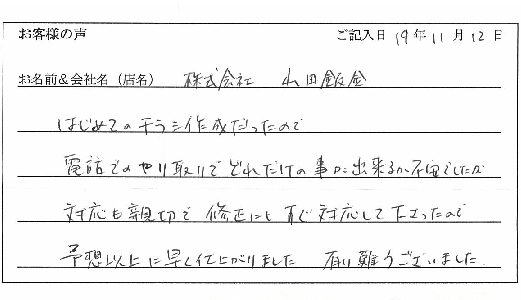 お客様の声 ご記入日 19年 11月 12日
お名前&会社名(店名) 株式会社 山田鈑金
はじめてのチラシ作成だったので
電話でのやり取りでどれだけの事が出来るか不安でしたが
対応も親切で 修正にもすぐ対応して下さったので
予想以上に早く仕上がりました 有り難うございました。